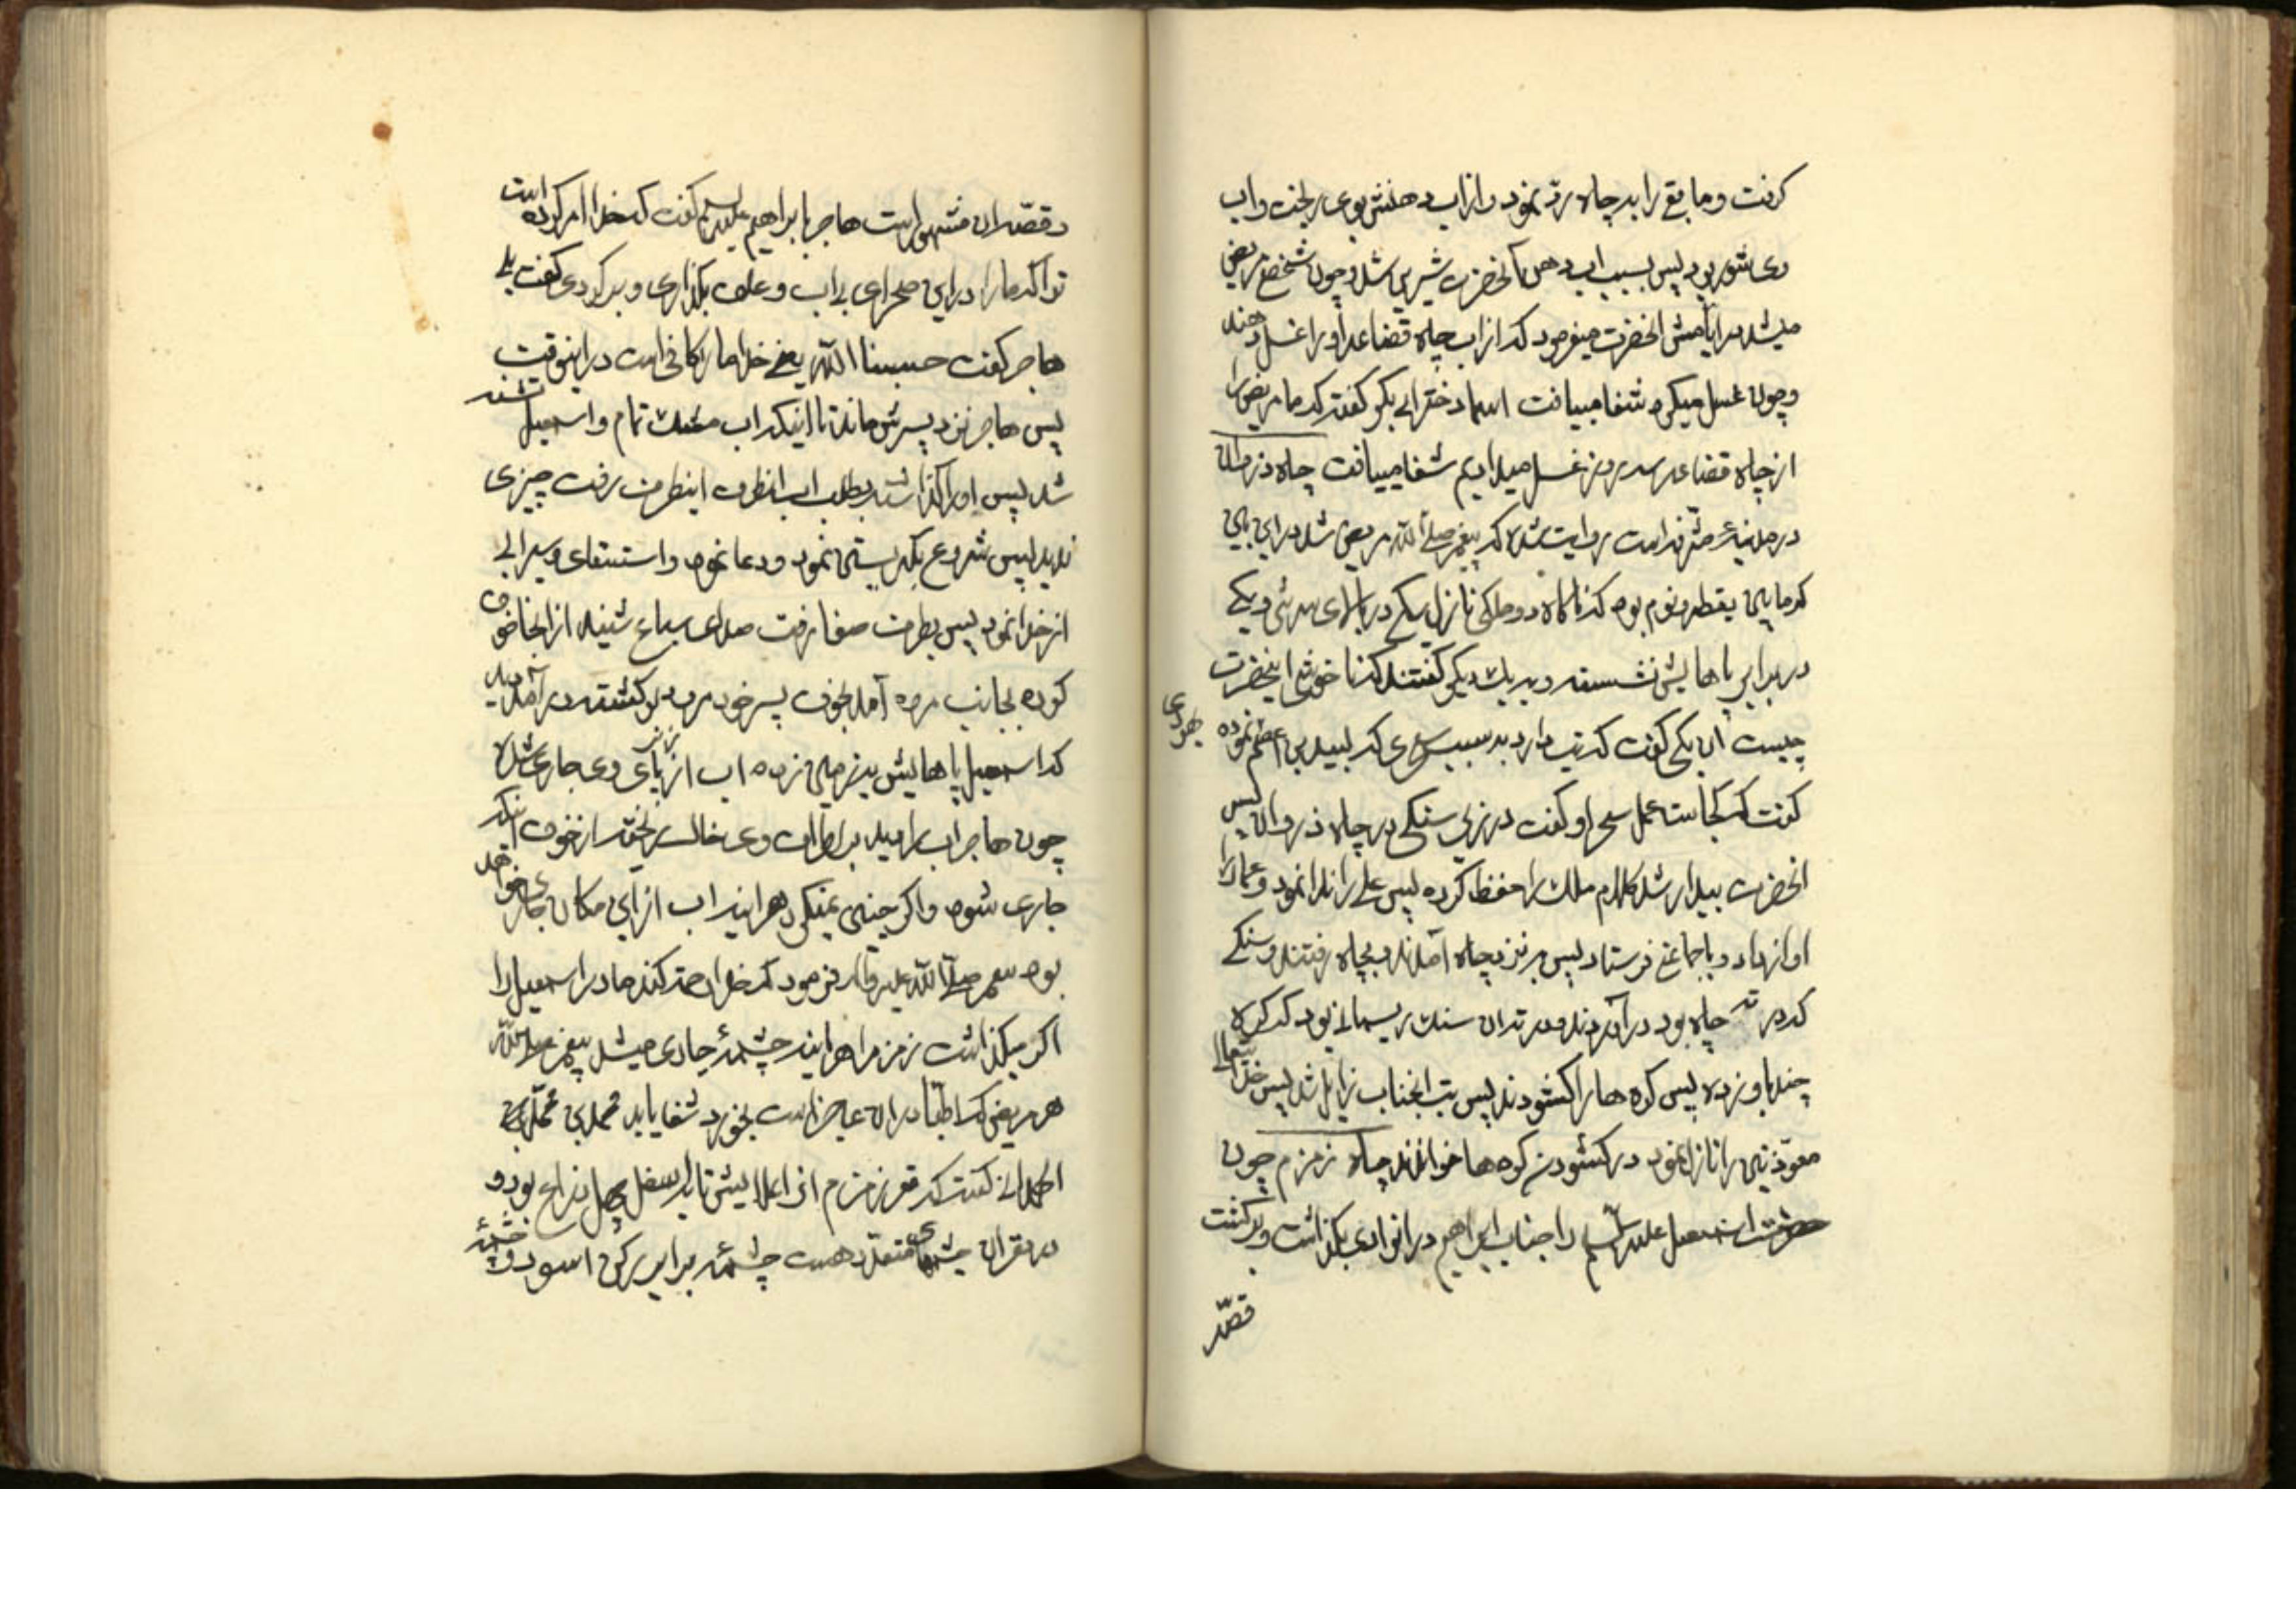 گرفت و مابقی را بر چاه رد نمود و از آب دهنش بوی ریخت و آب
وی شور بود پس بسبب آب دهن آنحضرت شیرین شد و چون شخص مریض
میشد در ایامش آنحضرت میفرمود که از آب چاه قضاعه او را غسل دهند
و چون غسل میکرد شفا مییافت اسما دختر ابی بکر گفت که ما مریض را
از چاه قضاعه سه روز غسل میدادیم شفا مییافت چاه ذروان
در مدینه مشرفه است روایت شده که پیغمبر صلی الله مریض شد در این
که ما بین یقظه و نوم بود که ناگاه دو ملکی نازل یکی در بالای سرش و یکی
در برابر پاهایش نشسته و بر یک دیگر گفتند که ناخوشی اینحضرت
چیست آن یکی گفت که تب دارد بسبب سحری که لبید بن اعصم نموده
یهودی
گفت که کجاست عمل سحر او گفت در زیر سنگی در چاه ذروان پس
آنحضرت بیدار شد کلام ملک را حفظ کرده پس علی را ندا نمود و عمار را
آواز داد و با جماعتی فرستاد پس بر نزد چاه آمدند و بچاه رفتند و سنگی
که در ته چاه بود در آوردند و در ته آن سنگ ریسمانی بود که گره
چند باو زده پس گره ها را گشودند پس تب آنجناب زایل شد پس خدای تعالی
معوذتین را نازل نمود در گشودن گره ها خواندند چاه زمزم چون
حضرت اسمعیل علیه السلم را جناب ابراهیم در آنوادی بگذاشت و برگشت
قصه
و قصه آن مشهور است هاجر با ابراهیم علیه السلم گفت که خدا امر کرده است
ترا که ما را در این صحرای بی آب و علف بگذاری و برگردی گفت بلی
هاجر گفت حسبنا الله یعنی خدا ما را کافی است در اینوقت
پس هاجر نزد پسرش ماند تا اینکه آب مشک تمام و اسمعیل تشنه
شد پس او را گذاشته بطلب آب آنطرف اینطرف رفت چیزی
ندید پس شروع بگریستن نمود و دعا نمود و استسقای و سیرابی
از خدا نمود پس بطرف صفا رفت صدای سباع شنید از آنجا خوف
کرده بجانب مروه آمد بخوف پسر خود مرد برگشته در آمد دید
که اسمعیل پاهایش بزمین زده آب از زیر پای وی جاری شده
چون هاجر آب را دید بر اطراف وی خاک ریخته از خوف آنکه
جاری شود و اگر چنین نمیکرد هر آینه آب از این مکان جاری خواهد
بود پیغمبر صلی الله علیه و آله فرمود که خدا رحمت کند مادر اسمعیل را
اگر میگذاشت زمزم را هر آینه چشمه جاری میشد پیغمبر صلی الله
هر مریضی که اطبا در آن عاجز است بخورد شفا یابد محمد بن محمد
الهمدانی گفت که قعر زمزم از اعلایش تا بر اسفل چهل ذراع بود و
در قعر آن چشمهای متعدد هست چشمه برابر رکن اسود و چشمه